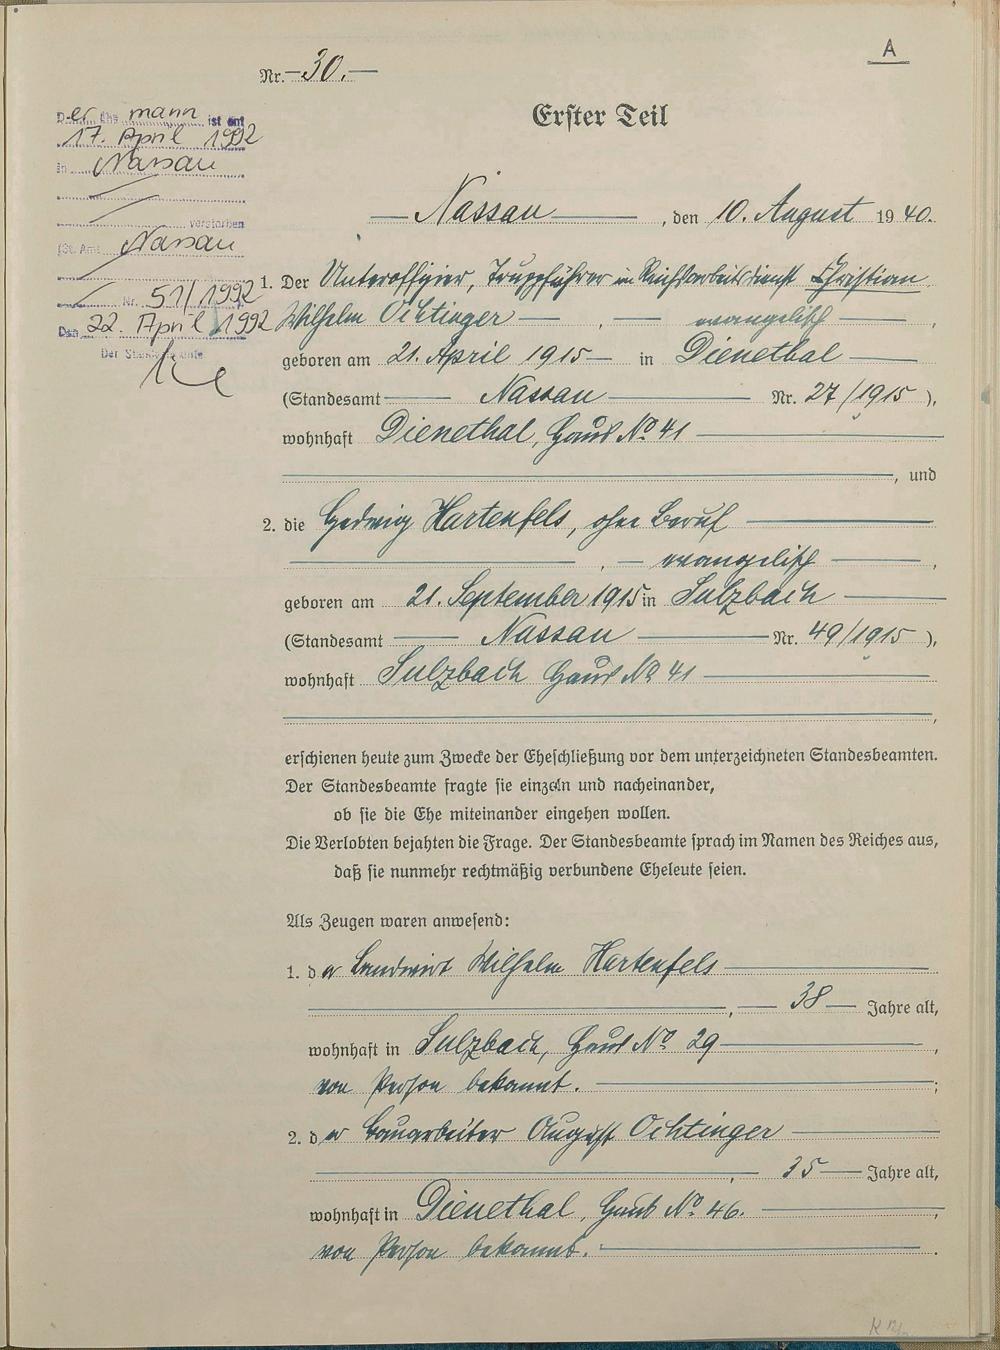 A
Nr. 30.
Erster Teil
Der Ehemann ist am
17. April 1992
in Nassau
verstorben
(St. Amt Nassau
Nr. 51/1992
Den 22. April 1992
Der Standesbeamte
Nassau, den 10. August 1940.
1. Der Unteroffizier, Truppführer im Reichsarbeitsdienst Christian
Wilhelm Ochtinger, evangelisch,
geboren am 21. April 1915 in Dienethal
(Standesamt Nassau Nr. 27/1915),
wohnhaft Dienethal, Haus No 41
, und
2. die Hedwig Hartenfels, ohne Beruf
, evangelisch,
geboren am 21. September 1915 in Sulzbach
(Standesamt Nassau Nr. 49/1915),
wohnhaft Sulzbach Haus No 41
,
erschienen heute zum Zwecke der Eheschließung vor dem unterzeichneten Standesbeamten.
Der Standesbeamte fragte sie einzeln und nacheinander,
ob sie die Ehe miteinander eingehen wollen.
Die Verlobten bejahten die Frage. Der Standesbeamte sprach im Namen des Reiches aus,
daß sie nunmehr rechtmäßig verbundene Eheleute seien.
Als Zeugen waren anwesend:
1. der Landwirt Wilhelm Hartenfels
, 38 Jahre alt,
wohnhaft in Sulzbach, Haus No 29,
von Person bekannt.;
2. der Bauarbeiter August Ochtinger
, 35 Jahre alt,
wohnhaft in Dienethal, Haus No 46.,
von Person bekannt.